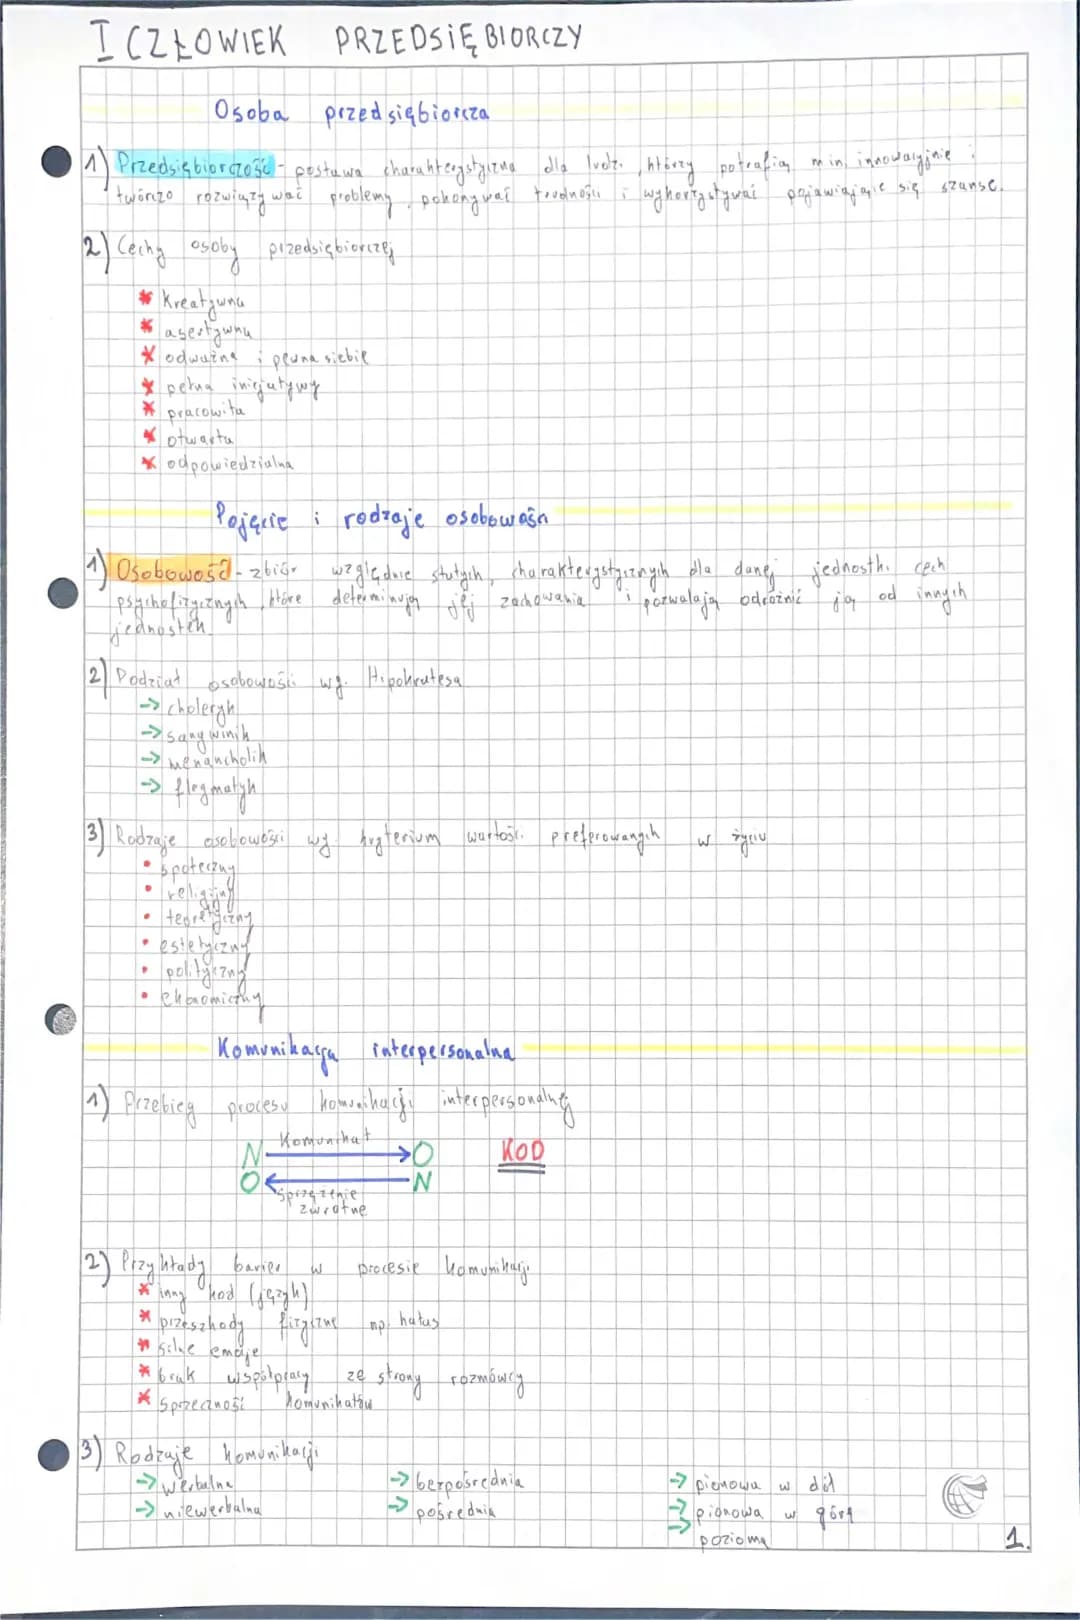 I CZŁOWIEK PRZEDSIĘBIORCZY
Osoba przedsiębiorcza
1) Przedsiębiorczość - postawa charakterystyczna dla ludzi, którzy potrafią m.in. innowacyjnie i
twórczo rozwiązywać problemy, pokonywać trudności i wykorzystywać pojawiające się szanse.
2) Cechy osoby przedsiębiorczej
* Kreatywna
* asertywna
* odważna i pewna siebie
* pełna inicjatywy
* pracowita
* otwarta
* odpowiedzialna
Pojęcie i rodzaje osobowości
1) Osobowość - zbiór względnie stałych, charakterystycznych dla danej jednostki cech
psychofizycznych, które determinują jej zachowania i pozwalają odróżnić ją od innych
jednostek.
2) Podział osobowości wg. Hipokratesa
-> choleryk
-> sangwinik
-> menancholik
-> flegmatyk
3) Rodzaje osobowości wg. kryterium wartości preferowanych w życiu
• społeczny
• religijny
• teoretyczny
• estetyczny
• polityczny
• ekonomiczny
Komunikacja interpersonalna
1) Przebieg procesu komunikacji interpersonalnej
Komunikat
N O KOD
O N
Sprzężenie
zwrotne
2) Przykłady barier w procesie komunikacji
* inny kod (język)
* przeszkody fizyczne np. hałas
* silne emocje
* brak współpracy ze strony rozmówcy
* Sprzeczność komunikatów
3) Rodzaje komunikacji
-> werbalna -> bezpośrednia -> pionowa w dół
-> niewerbalna -> pośrednia -> pionowa w górę
-> pozioma
1.